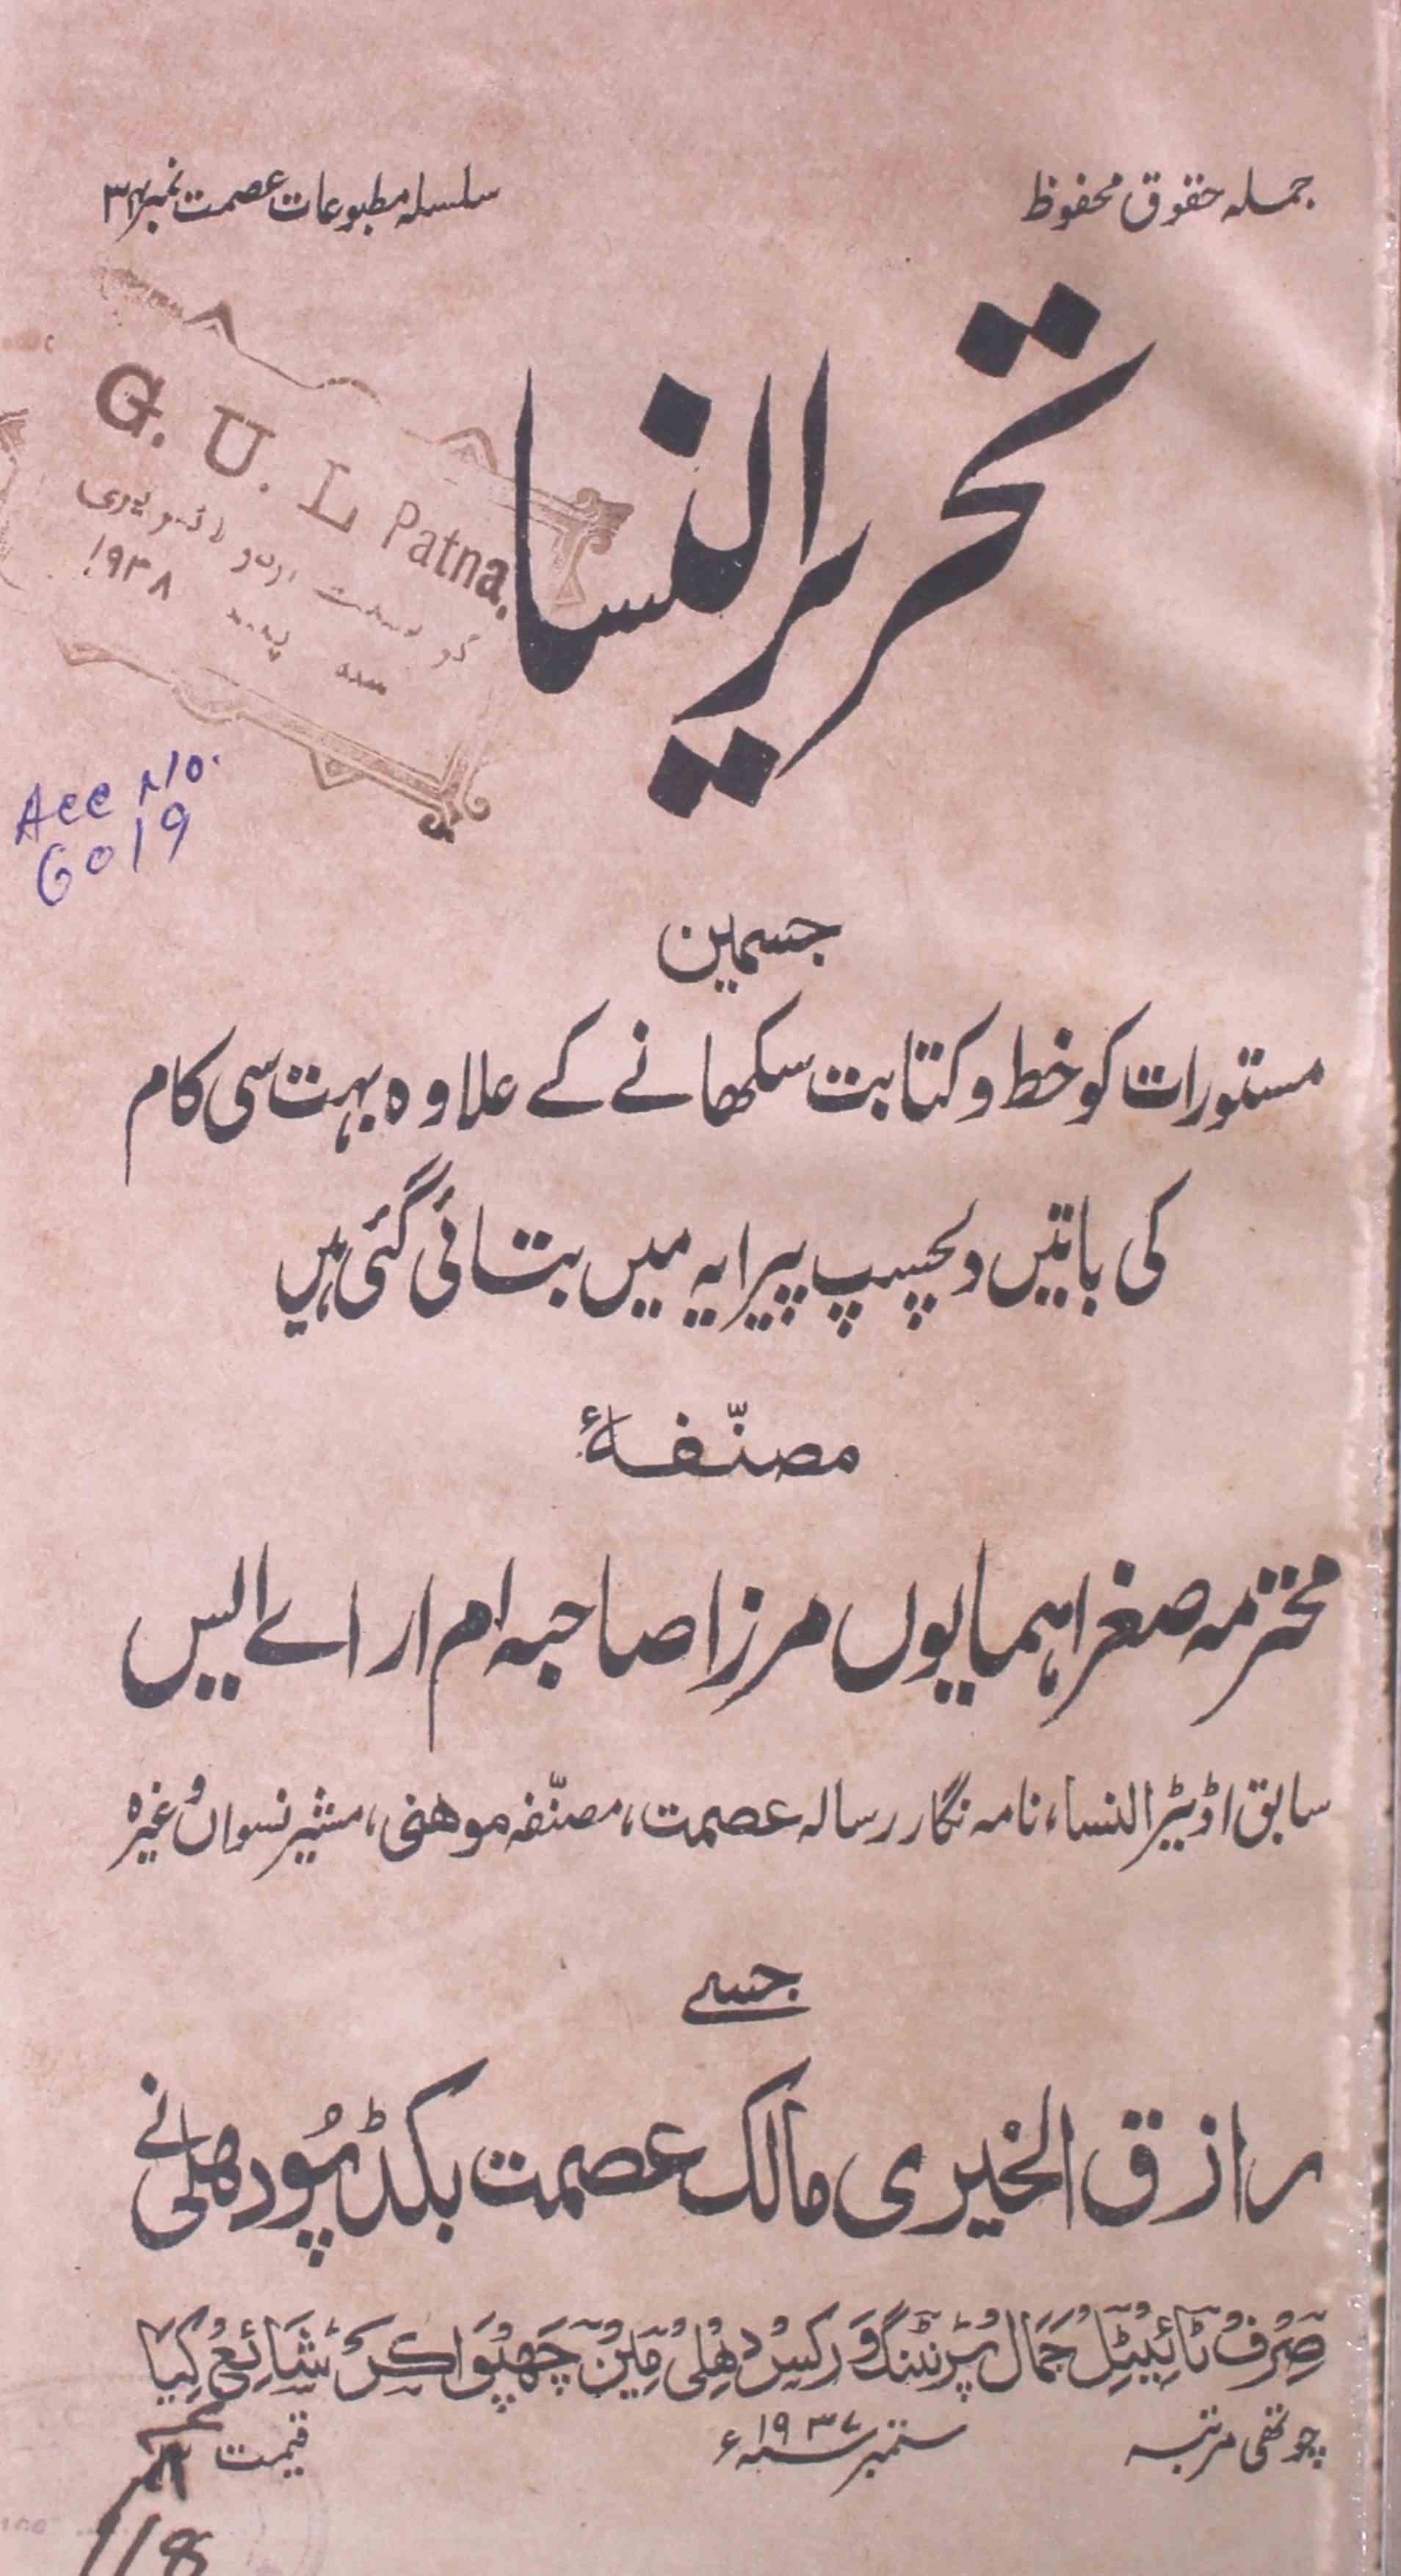 جملہ حقوق محفوظ
سلسلہ مطبوعات عصمت نمبر
تحریر النسا
G. U. L Patna.
گورنمنٹ اردو لائبریری
پٹنہ ۱۹۳۸
Acc No.
6019
جسمین
مستورات کو خط و کتابت سکھانے کے علاوہ بہت سی کام
کی باتیں دلچسپ پیرایہ میں بتائی گئی ہیں
مصنّفۂ
محترمہ صغرا ہمایوں مرزا صاحبہ ام ار اے ایس
سابق اڈیٹر النساء، نامہ نگار رسالہ عصمت، مصنّفہ موھنی، مشیر نسواں وغیرہ
جسے
رازق الخیری مالک عصمت بکڈپُو دھلی نے
صِرف ٹائیٹل جمال پرنٹنگ ورکس دہلی میں چھپوا کر شائع کیا
چوتھی مرتبہ
ستمبر سنہ ۱۹۳۷ء
قیمت
118